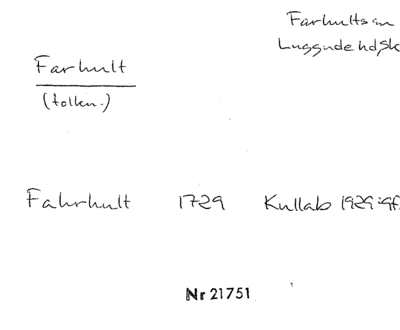 Farhults sn
Luggude hd, Sk
Farhult
(tolkn.)
Fahrhult 1729 Kullab 1929:
Nr 21751